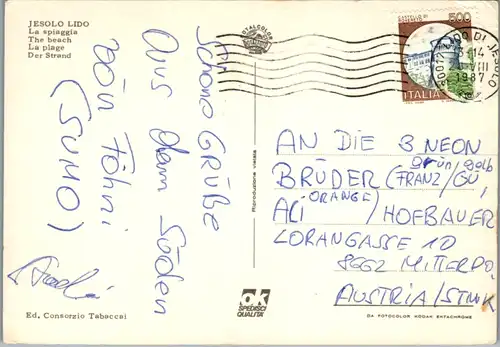 JESOLO LIDO
La spiaggia
The beach
La plage
Der Strand
Schöne GRÜßE
AUS dem Süden
von Föhni
(SUMO)
Ed. Consorzio Tabaccai
Riproduzione vietata
OK
SPEDISCI
QUALITÀ
500
ITALIA
1987
AN DIE 3 NEON
grün, gelb
BRÜDER (FRANZ/GÜ,
ORANGE
ALI) / HOFBAUER
LORANGASSE 10
8662 MITTERDO.
AUSTRIA/STMK
DA FOTOCOLOR KODAK EKTACHROME